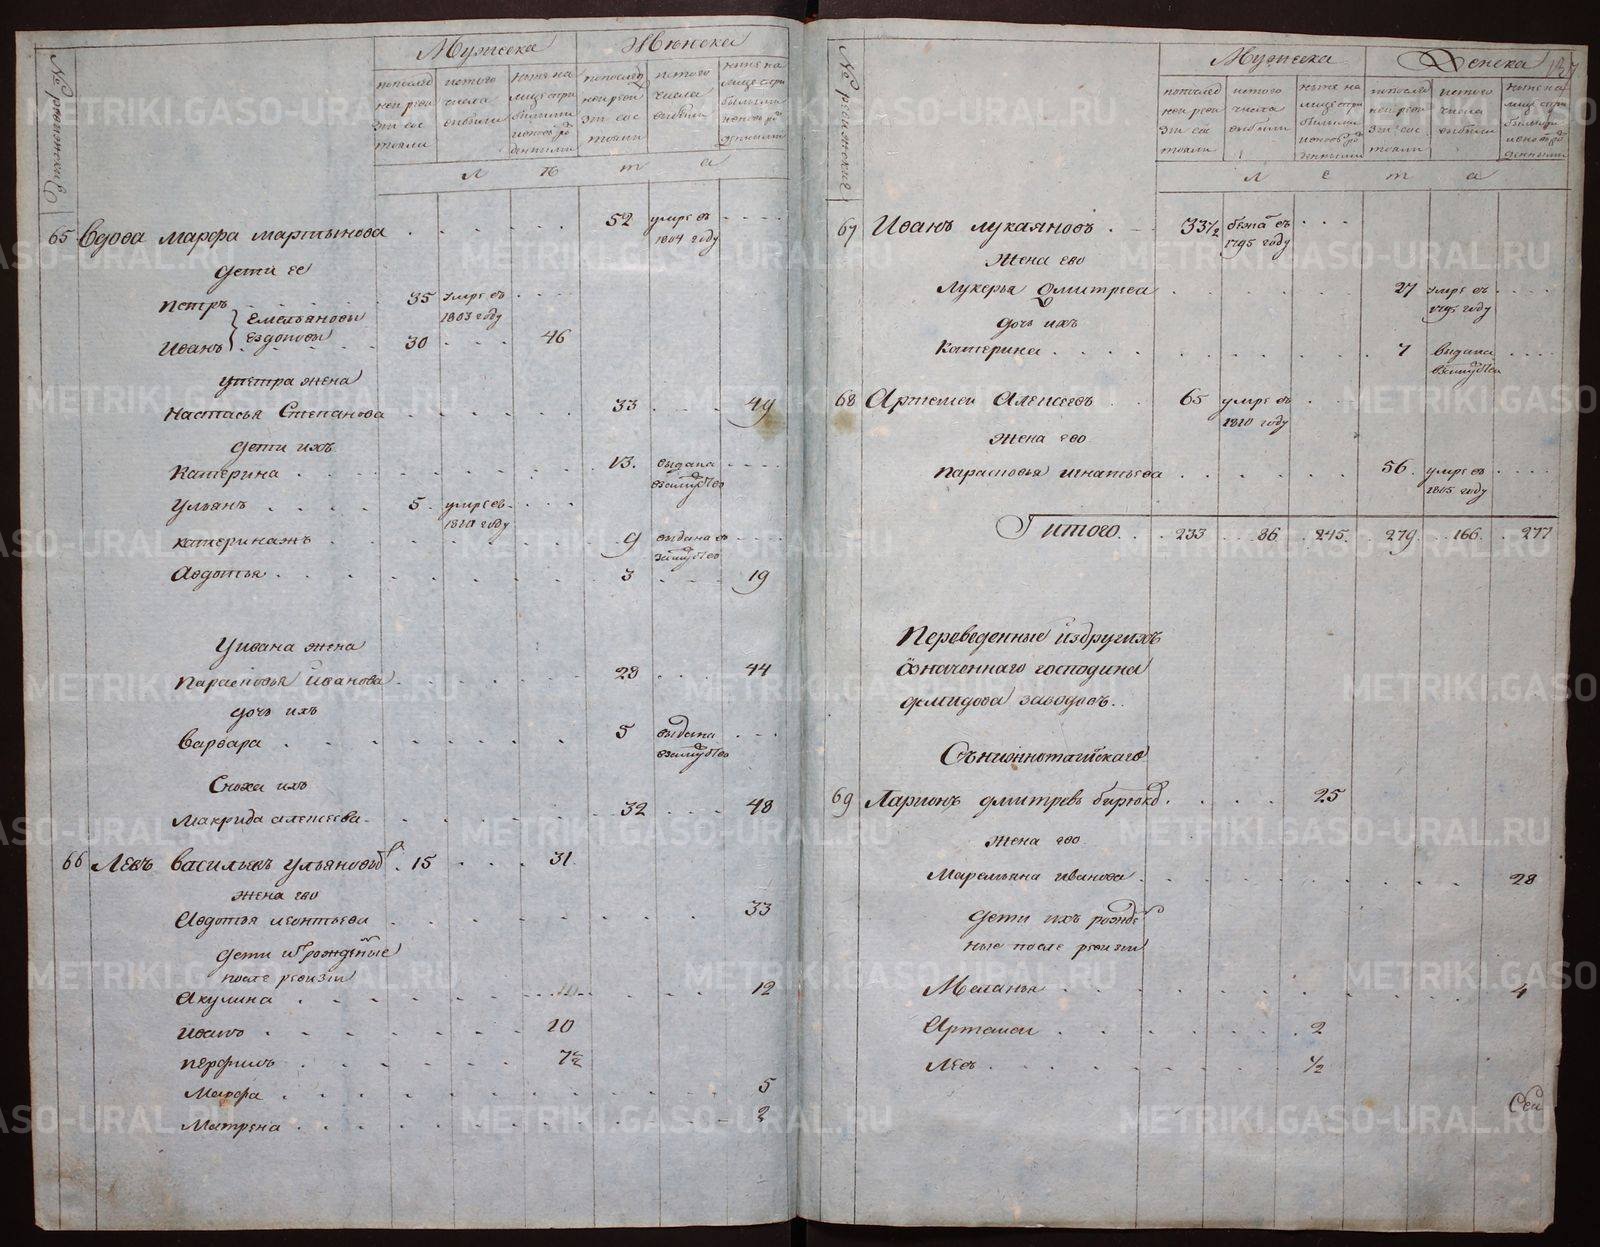 № ревижския
Мужеска
Женска
попослед ней реви зіи сос тояли
истого числа выбыли
ныне на лице спри былыми иновь ро жденными
попослед ней реви зіи сос тояли
истого числа выбыли
ныне на лице спри былыми иновь ро жденными
л ѣ т а
65 Вдова марфа мартынова 52 умре въ 1804 году
дети ее
петръ 35 умре въ 1803 году
Емельяновы
Иванъ 30 46
упетра жена
настасья Степанова 33 49
дети ихъ
Катерина 13. выдана взамужево
ульянъ 5 умре въ 1810 году
катеринажъ 9 выдана в замужево
Авдотья 3 19
Уивана жена
парасковья Иванова 28 44
дочь ихъ
варвара 5 выдана взамужево
Сноха ихъ
макрида алексеева 32 48
66 Левъ васильевъ ульяновъ 15 31
жена его
Авдотья леонтьева 33
дети
после ревизіи
Акулина 12
иванъ 10
перфилъ 7½
Марфа 5
Матрена 2
137
№ ревижския
Мужеска
Женска
попослед ней реви зіи сос тояли
истого числа выбыли
ныне на лице спри былыми иновь ро жденными
попослед ней реви зіи сос тояли
истого числа выбыли
ныне на лице спри былыми иновь ро жденными
л е т а
67 Иванъ лукаяновъ 33½ бежа въ 1795 году
жена его
Лукерья дмитреа 27 умре въ 1795 году
дочь ихъ
Катерина 7 выдана взамужево
68 Артемеи Алексеевъ 65 умре въ 1810 году
жена его
парасковья игнатьева 56 умре въ 1805 году
итого 233 86 245. 279 166. 277
Переведенные издругихъ
означеннаго господина
демидова заводовъ.
69 Ларионъ дмитревъ бирюкв 25
жена его
Маремьяна иванова 28
дети ихъ рожде
ные после ревизіи
Меланья 4
Артемеи 2
Левъ ½
METRIKI.GASO-URAL.RU